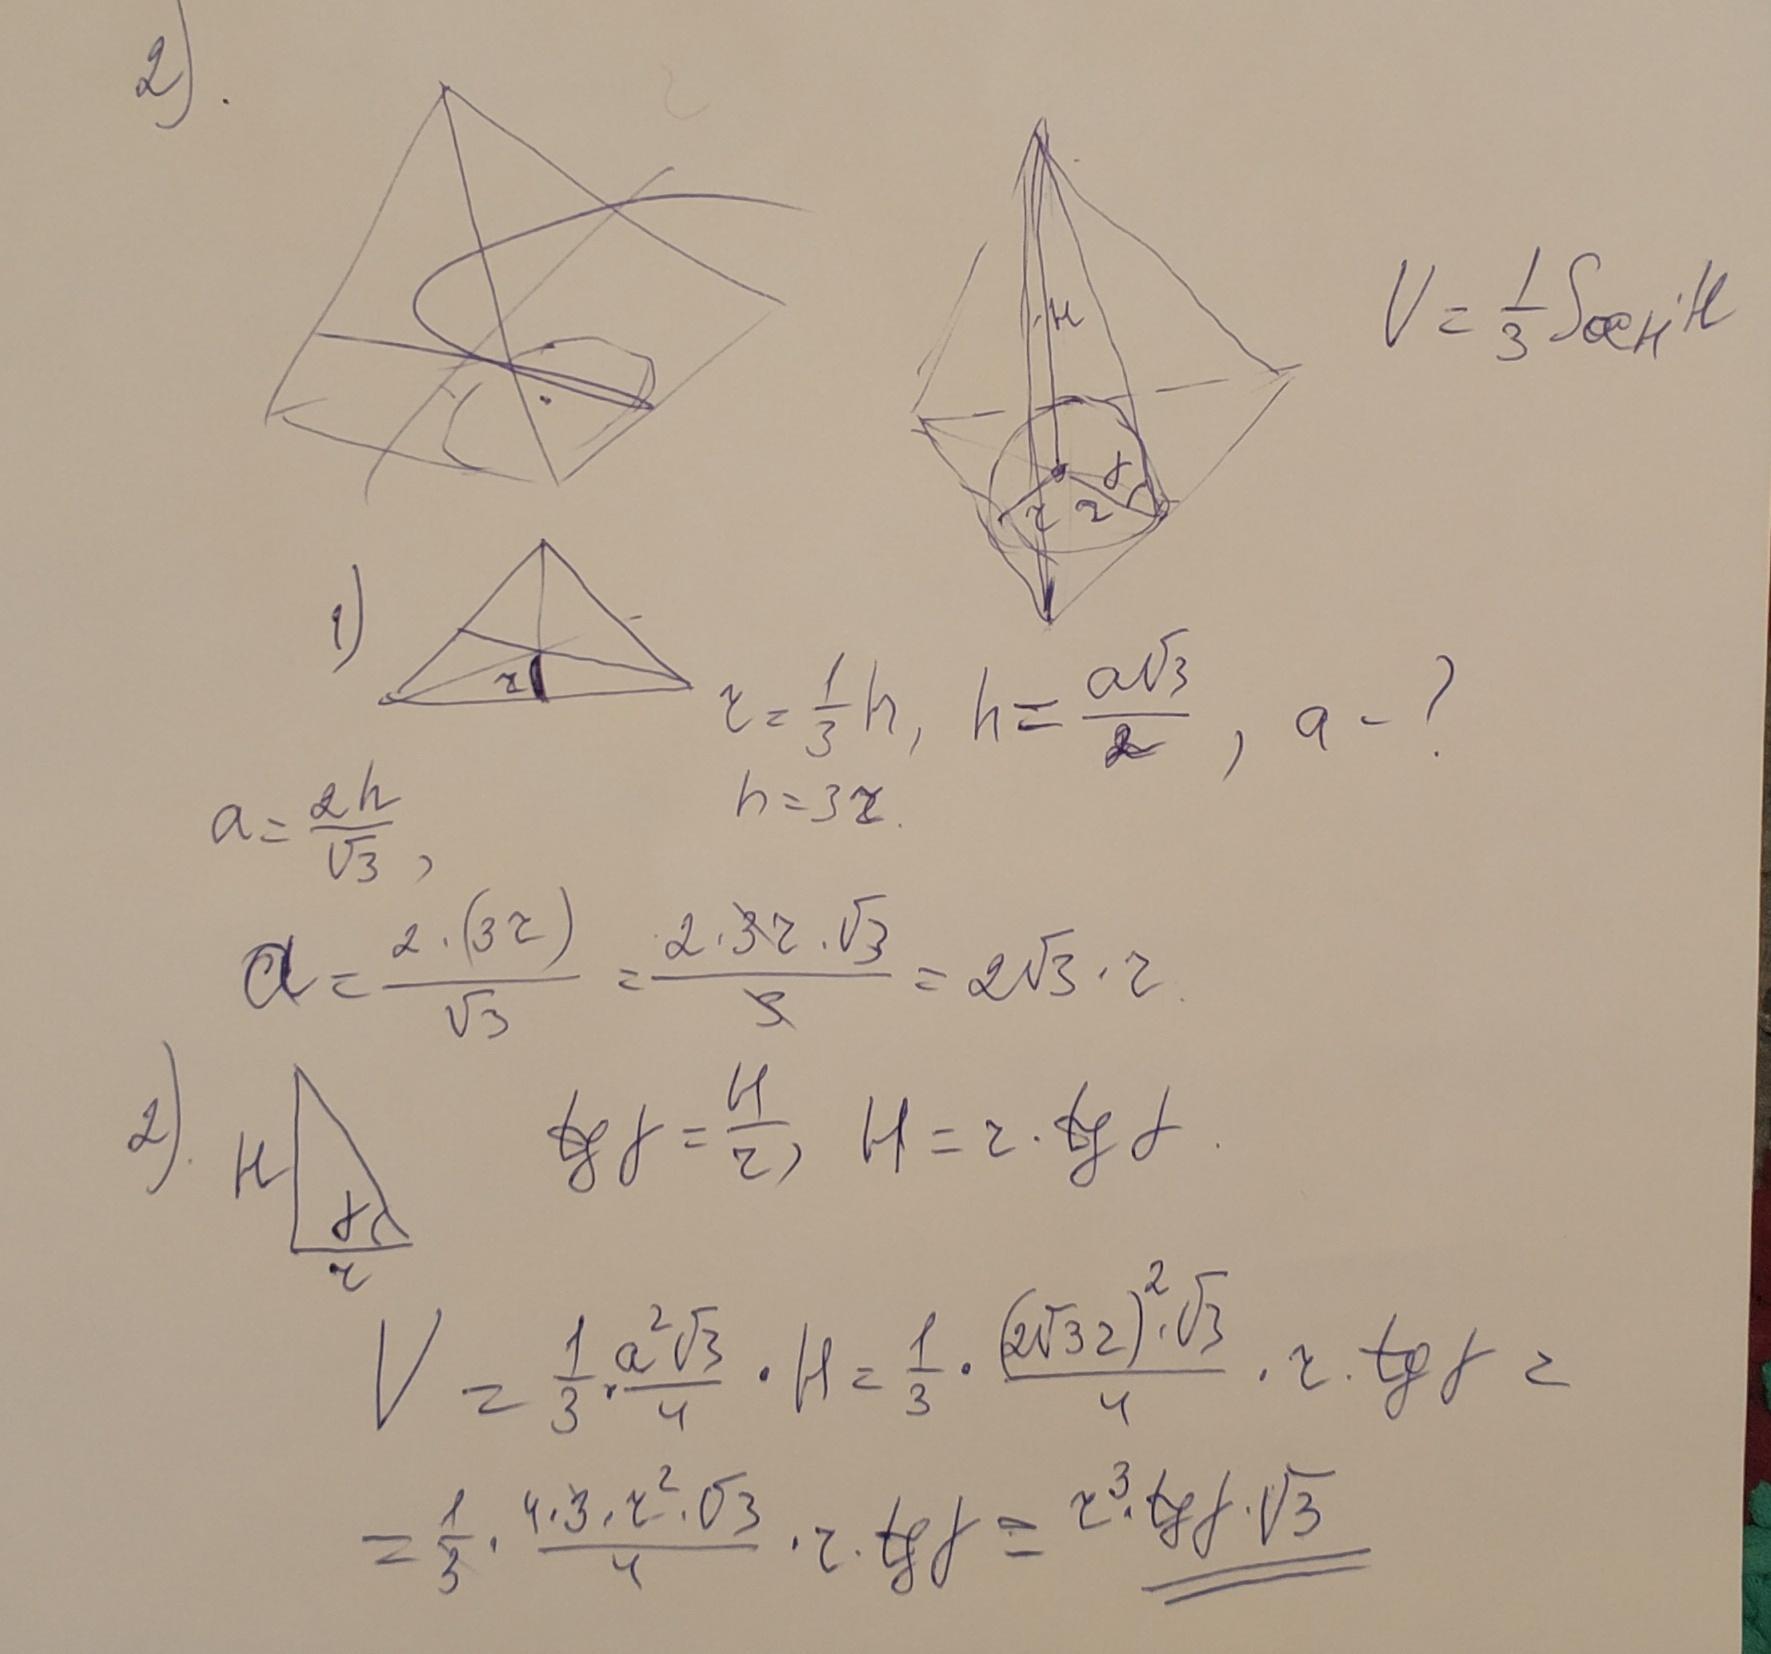 2).
H
γ
r r
V = 1/3 Sосн·H
1)
r
r = 1/3 h, h = a√3/2, a - ?
a = 2h/√3, h = 3r.
a = 2·(3r)/√3 = 2·3r·√3/3 = 2√3·r.
2).
H
γ
r
tg γ = H/r, H = r·tg γ.
V = 1/3 · a²√3/4 · H = 1/3 · (2√3r)²·√3/4 · r·tg γ =
= 1/3 · 4·3·r²·√3/4 · r·tg γ = r³·tg γ·√3